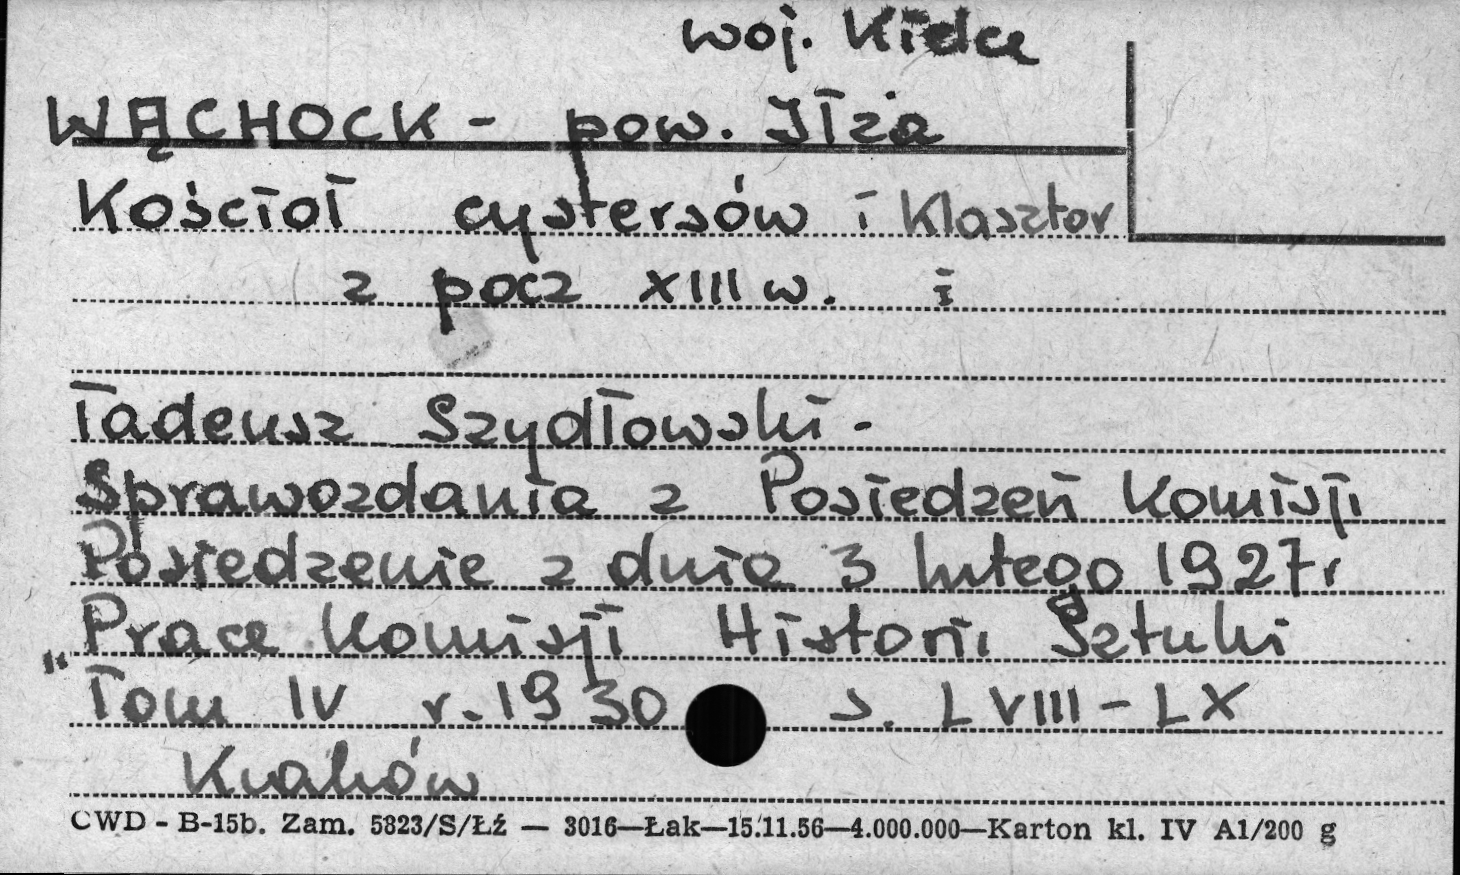 woj. Kielce
WĄCHOCK - pow. Iłża
Kościoł cystersów i Klasztor
z pocz XIII w. i
Tadeusz Szydłowski -
Sprawozdania z Posiedzeń Komisji
Posiedzenie z dnia 3 lutego 1927 r
Prace Komisji Historii Sztuki
" Tom IV r. 1930 s. LVIII - LX
Kraków
CWD - B-15b. Zam. 5823/S/Łź — 3016—Łak—15.11.56—4.000.000—Karton kl. IV A1/200 g